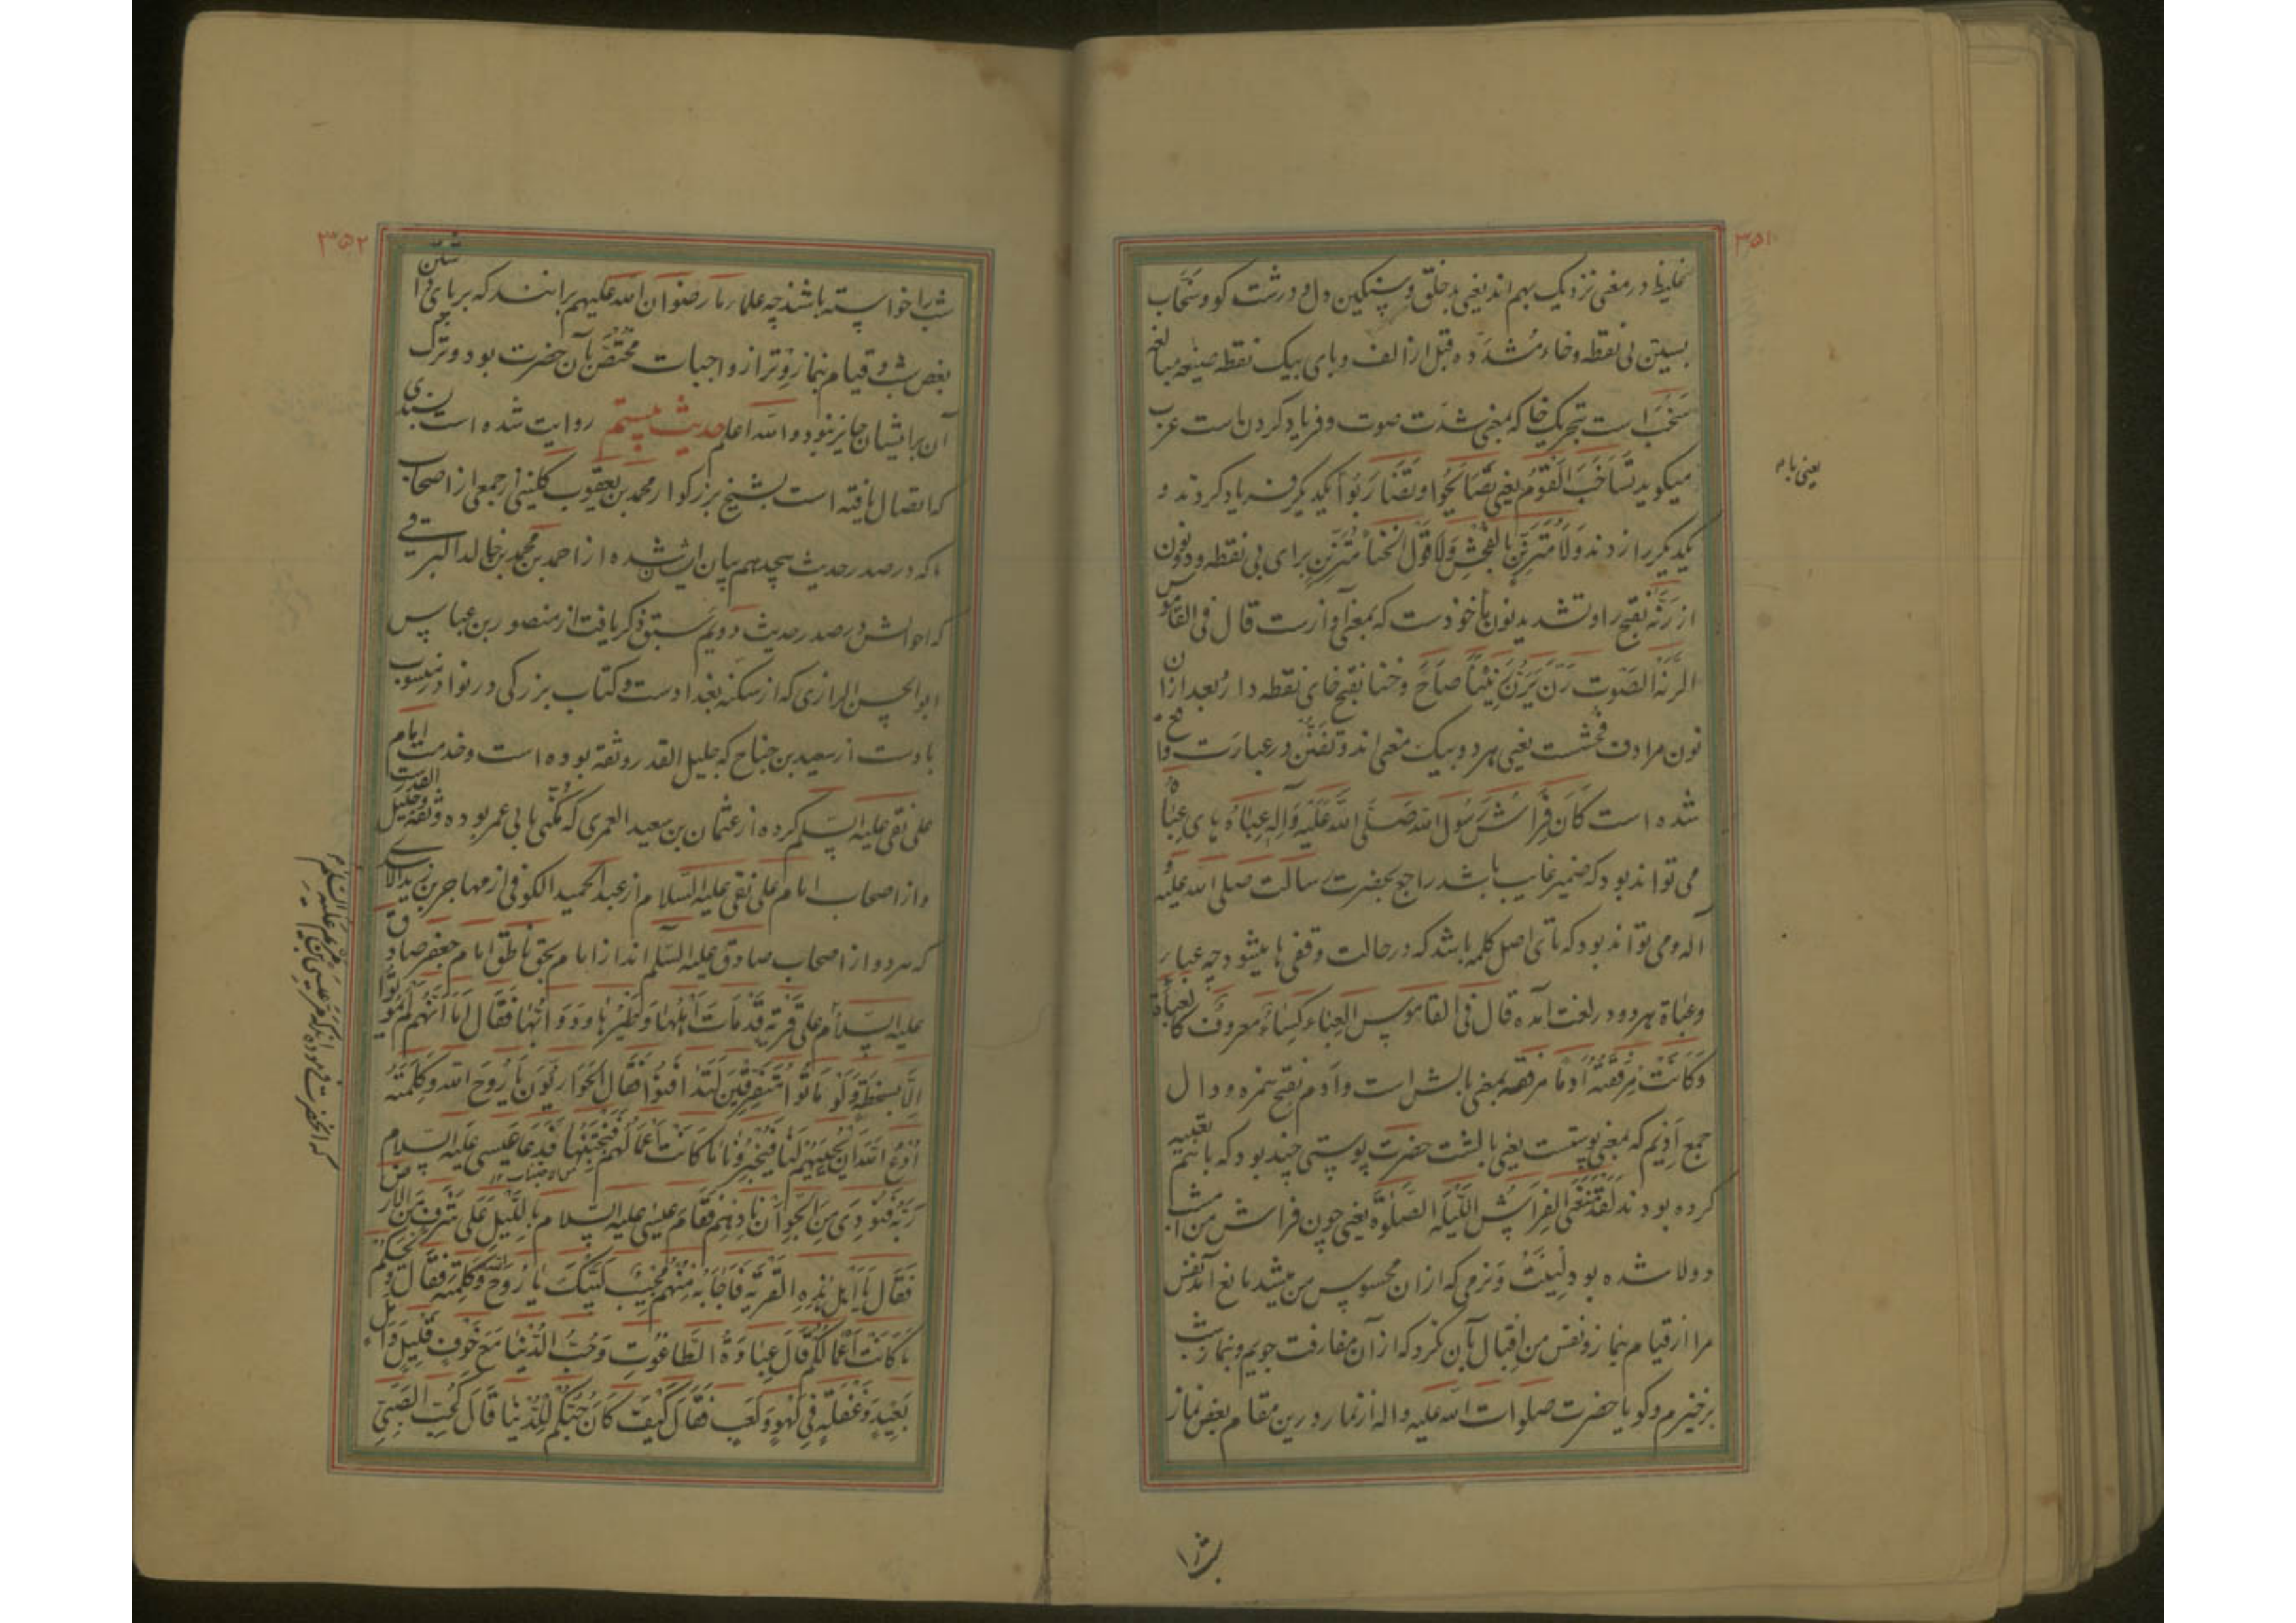 ۳۵۱
غلیظ در معنی نزدیک بهم اند یعنی بدخلق و سنگین دل و درشت کو و سَخّاب
بسین بی نقطه و خاء مُشدّده قبل از الف و بای بیک نقطه صیغه مبالغه
سَخَب است بتحریک خا که بمعنی شدت صوت و فریاد کردن است عرب
میکوید تَسٰاخَبَ القَوْمُ یعنی تَصٰایَحُوا وَ تَضٰارَبُوا یکدیگر فریاد کردند و
یعنی باهم
یکدیگر را زدند وَلا مُتَرَنِّنٍ بِالفُحْشِ وَلا قَوْلِ الخَنا مُتَرَنِّن برای بی نقطه و دو نون
از رَنَّه بفتح را و تشدید نون ماخوذست که بمعنی آوازست قال فی القاموس
الرنّة الصَّوت رَنَّ یَرِنُّ رَنیناً صٰاحَ و خنا بفتح خای نقطه دار و بعد از ان
نون مرادف فحشست یعنی هر دو بیک معنی اند و تَفَنُّن در عبارت واقع
شده است کٰانَ فِرٰاشُ رَسُولِ الله صَلَّی اللهُ عَلَیْهِ وَآلِهِ عَبٰاءَةً های عباه
می تواند بود که ضمیر غایب باشد راجع بحضرت رسالت صلی الله علیه و
آله و می تواند بود که تای اصل کلمه باشد که در حالت وقفی ها میشود چه عباء
وعباة هر دو در لغت آمده قال فی القاموس العباء کساء معروف کالعباة
وَکٰانَتْ مِرْفَقَتُهُ اَدَماً مرفقه بمعنی بالش است و اَدَم بفتح همزه و دال
جمع اَدیم که بمعنی پوستست یعنی بالشت حضرت پوستی چند بود که باهم تعبیه
کرده بودند لَقَدْ مَنَعَنِی الفِرٰاشُ اللَّیْلَةَ الصَّلٰوةَ یعنی چون فراش من امشب
دولا شده بود لِینَت و نرمی که ازان محسوس من میشد مانع آمد نفس
مرا از قیام بنماز و نفس من اقبال بآن نکرد که از آن مفارقت جویم و بنماز شب
برخیزم و کویا حضرت صلوات الله علیه و اله از نماز درین مقام بعض نماز
شب را
۳۵۲
شب را خواسته باشند چه علماء ما رضوان الله علیهم برانند که برپای داشتن
بعض شب و قیام بنماز وتر از واجبات مختصّ بآن حضرت بود و ترک
آن برایشان جایز نبود والله اعلم حدیث بیستم روایت شده است بسندی
که اتصال یافته است بشیخ بزرکوار محمد بن یعقوب کلینی از جمعی از اصحاب
ما که در صدر حدیث هیجدهم بیان ایشان شده از احمد بن محمد بن خالد البرقی
که احوالش در صدر حدیث دویم سبق ذکر یافت از منصور بن عباس
ابو الحسن الرازی که از سکنه بغدادست و کتاب بزرکی در نوادر منسوب
باوست از سعید بن جناح که جلیل القدر و ثقه بوده است و خدمت امام
علی نقی علیه السلم کرده از عثمان بن سعید العمری که مکنّی بابی عمر بوده و ثقه و جلیل القدرست
و از اصحاب امام علی نقی علیه السلام از عبد الحمید الکوفی از مهاجر بن الاسدی
که هر دو از اصحاب صادق علیه السّلم اند از امام بحق ناطق امام جعفر صادق
علیه السلام عَلیٰ قَرْیَةٍ قَدْ مٰاتَ اَهْلُهٰا وَطَیْرُهٰا وَدَوٰابُّهٰا فَقٰالَ اَمٰا اِنَّهُمْ لَمْ یَمُوتُوا
اِلّا بِسَخْطَةٍ وَلَوْ مٰاتُوا مُتَفَرِّقینَ لَتَدٰافَنُوا فَقٰالَ الحَوٰارِیُّونَ یٰا رُوحَ اللهِ وَکَلِمَتَهُ
اُدْعُ اللهَ اَنْ یُحْیِیَهُمْ لَنٰا فَیُخْبِرُونٰا مٰا کٰانَتْ اَعْمٰالُهُمْ فَنَجْتَنِبَهٰا فَدَعٰا عیسی علیه السّلام
رَبَّهُ فَنُودِیَ مِنَ الجَوِّ اَنْ نٰادِهِمْ فَقٰامَ عیسی علیه السلام بِاللَّیْلِ عَلیٰ شَرَفٍ مِنَ الارض
فَقٰالَ یٰا اَهْلَ هٰذِهِ القَرْیَةِ فَاَجٰابَهُ مِنْهُمْ مُجیبٌ لَبَّیْکَ یٰا رُوحَ الله وَکَلِمَتَهُ فَقٰالَ وَیْحَکُمْ
مٰا کٰانَتْ اَعْمٰالُکُمْ قٰالَ عِبٰادَةُ الطّٰاغُوتِ وَحُبُّ الدُّنْیٰا مَعَ خَوْفٍ قَلیلٍ وَاَمَلٍ
بَعیدٍ وَغَفْلَةٍ فی لَهْوٍ وَلَعِبٍ فَقٰالَ کَیْفَ کٰانَ حُبُّکُمْ لِلدُّنْیٰا قٰالَ کَحُبِّ الصَّبِیِّ
که آنحضرت فرموده اند که مرّ عیسی بن مریم علیه السّلام